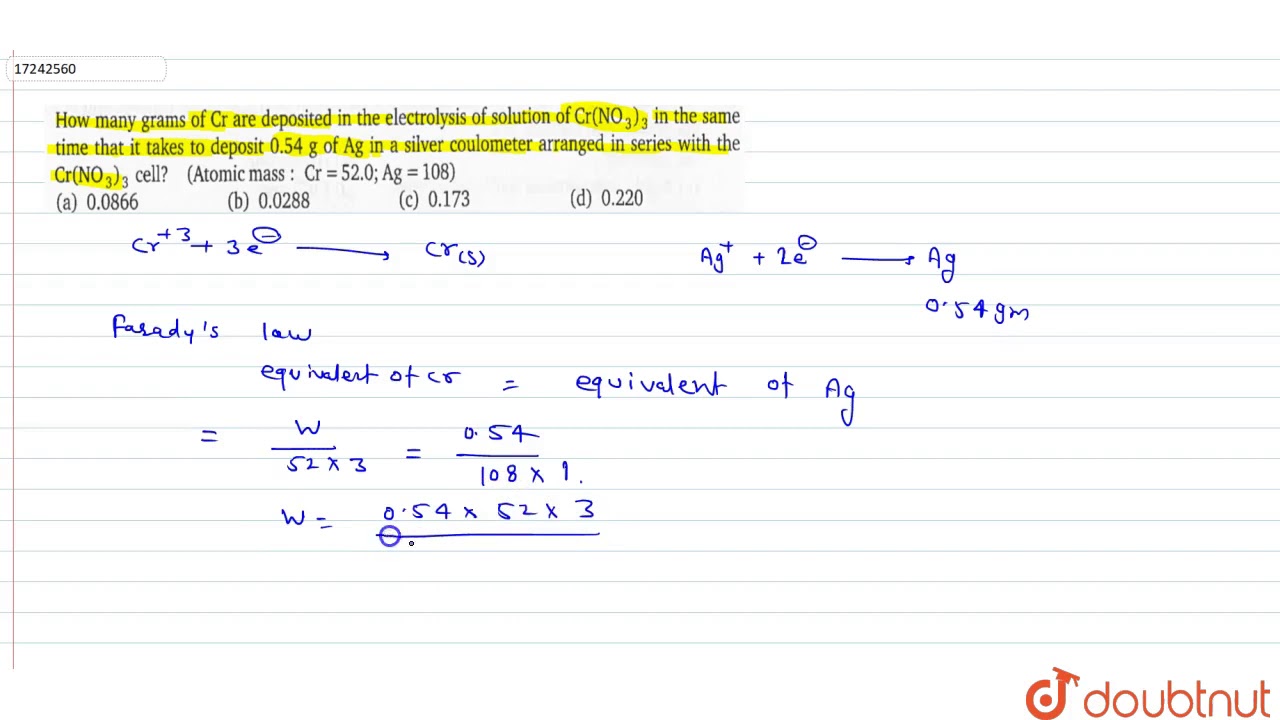 17242560
How many grams of Cr are deposited in the electrolysis of solution of Cr(NO₃)₃ in the same
time that it takes to deposit 0.54 g of Ag in a silver coulometer arranged in series with the
Cr(NO₃)₃ cell? (Atomic mass : Cr = 52.0; Ag = 108)
(a) 0.0866 (b) 0.0288 (c) 0.173 (d) 0.220
Cr⁺³ + 3e⊖ ⟶ Cr(s) Ag⁺ + 2e⊖ ⟶ Ag
0.54 gm
Farady's law
equivalent of Cr = equivalent of Ag
= W / 52 × 3 = 0.54 / 108 × 1.
W = 0.54 × 52 × 3
doubtnut